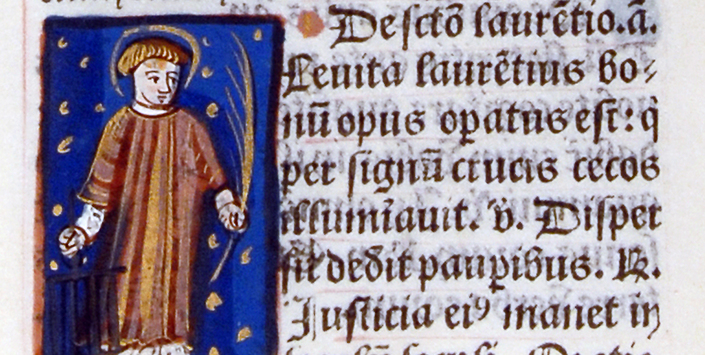 De sctō laurētio. ā.
Leuita laurētius bo⸗
nū opus opatus est: q̇
per signū crucis cecos
illumiauit. v. Disper
sit dedit pauꝑibus. R.
Justicia eiꝰ manet in